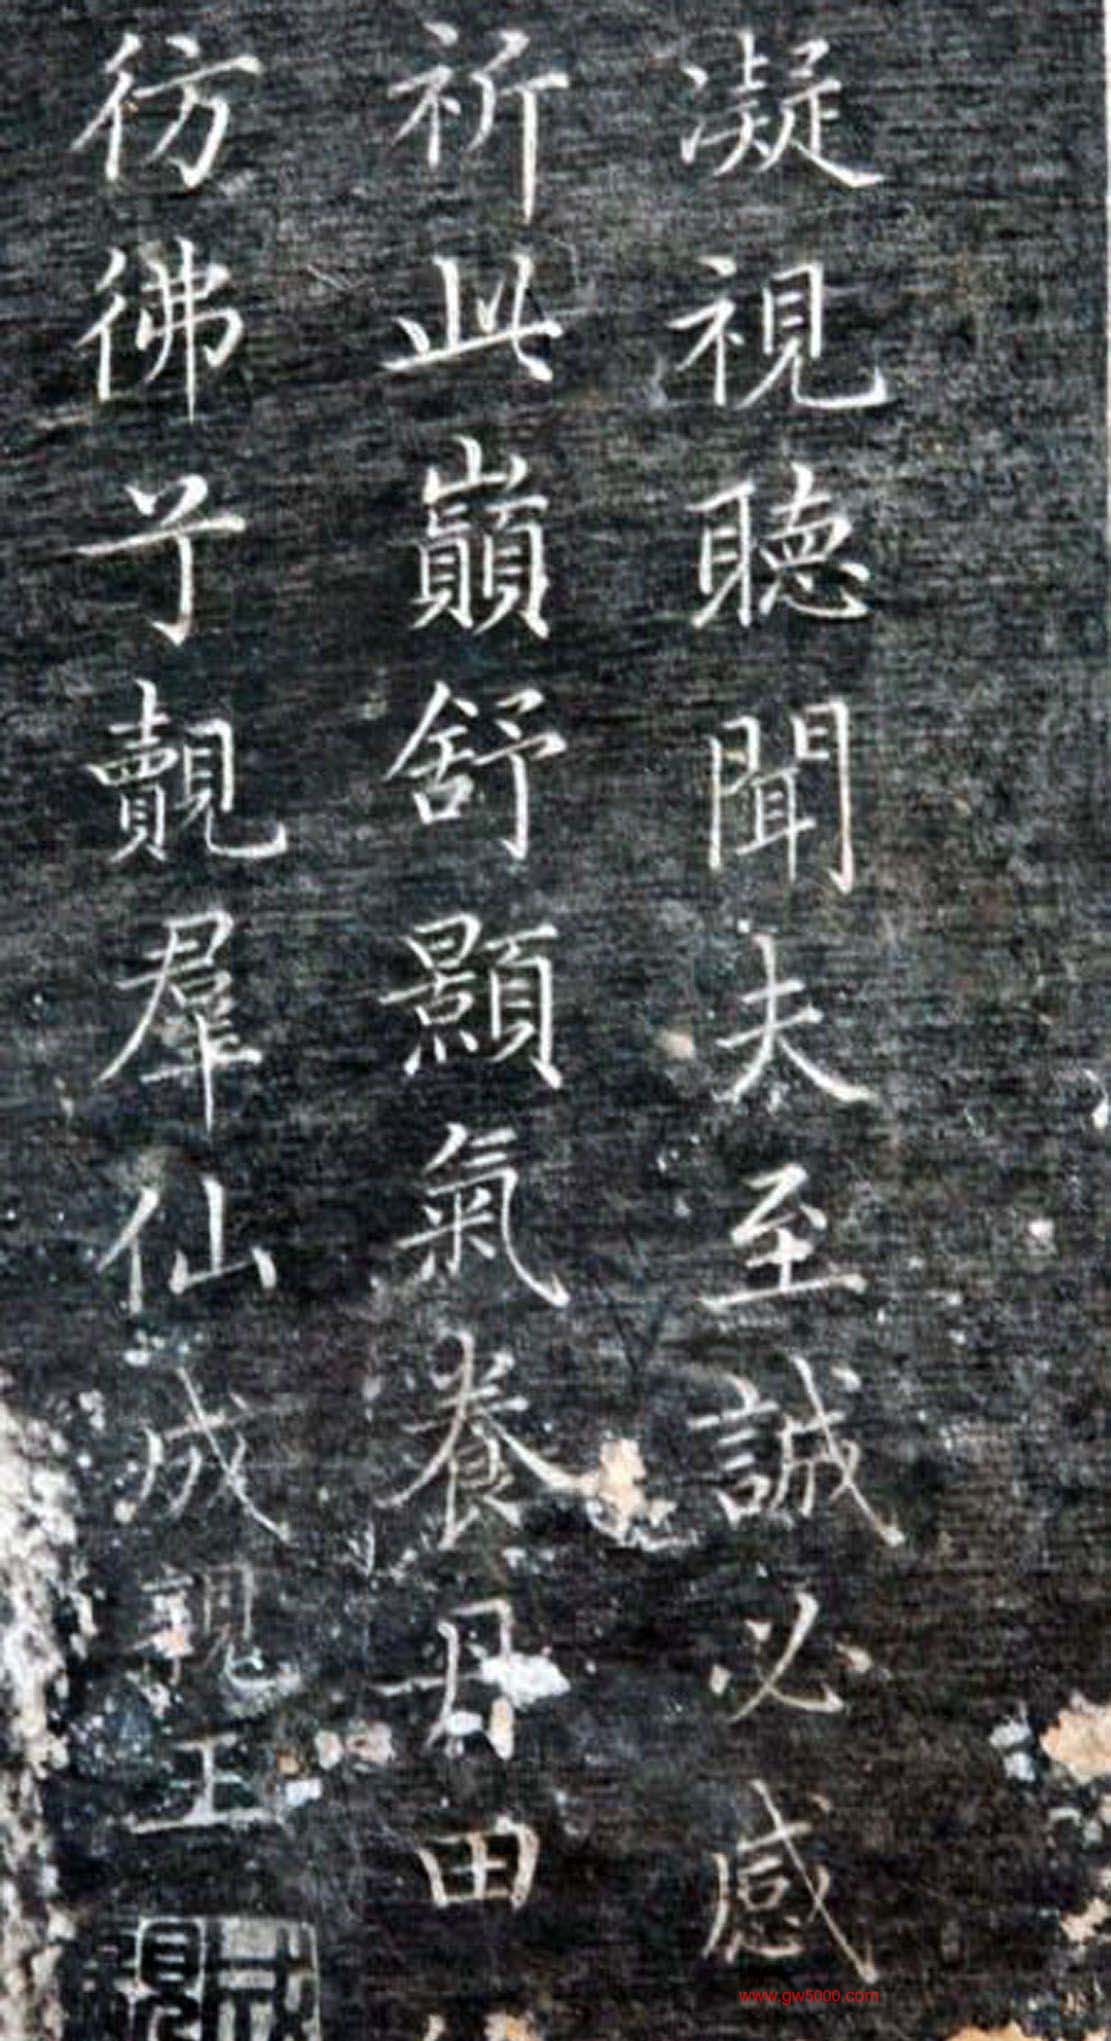 凝視聴聞夫至誠必感
祈此巔舒顥氣養丹田
彷彿兮覿羣仙成親王
www.gw5000.com